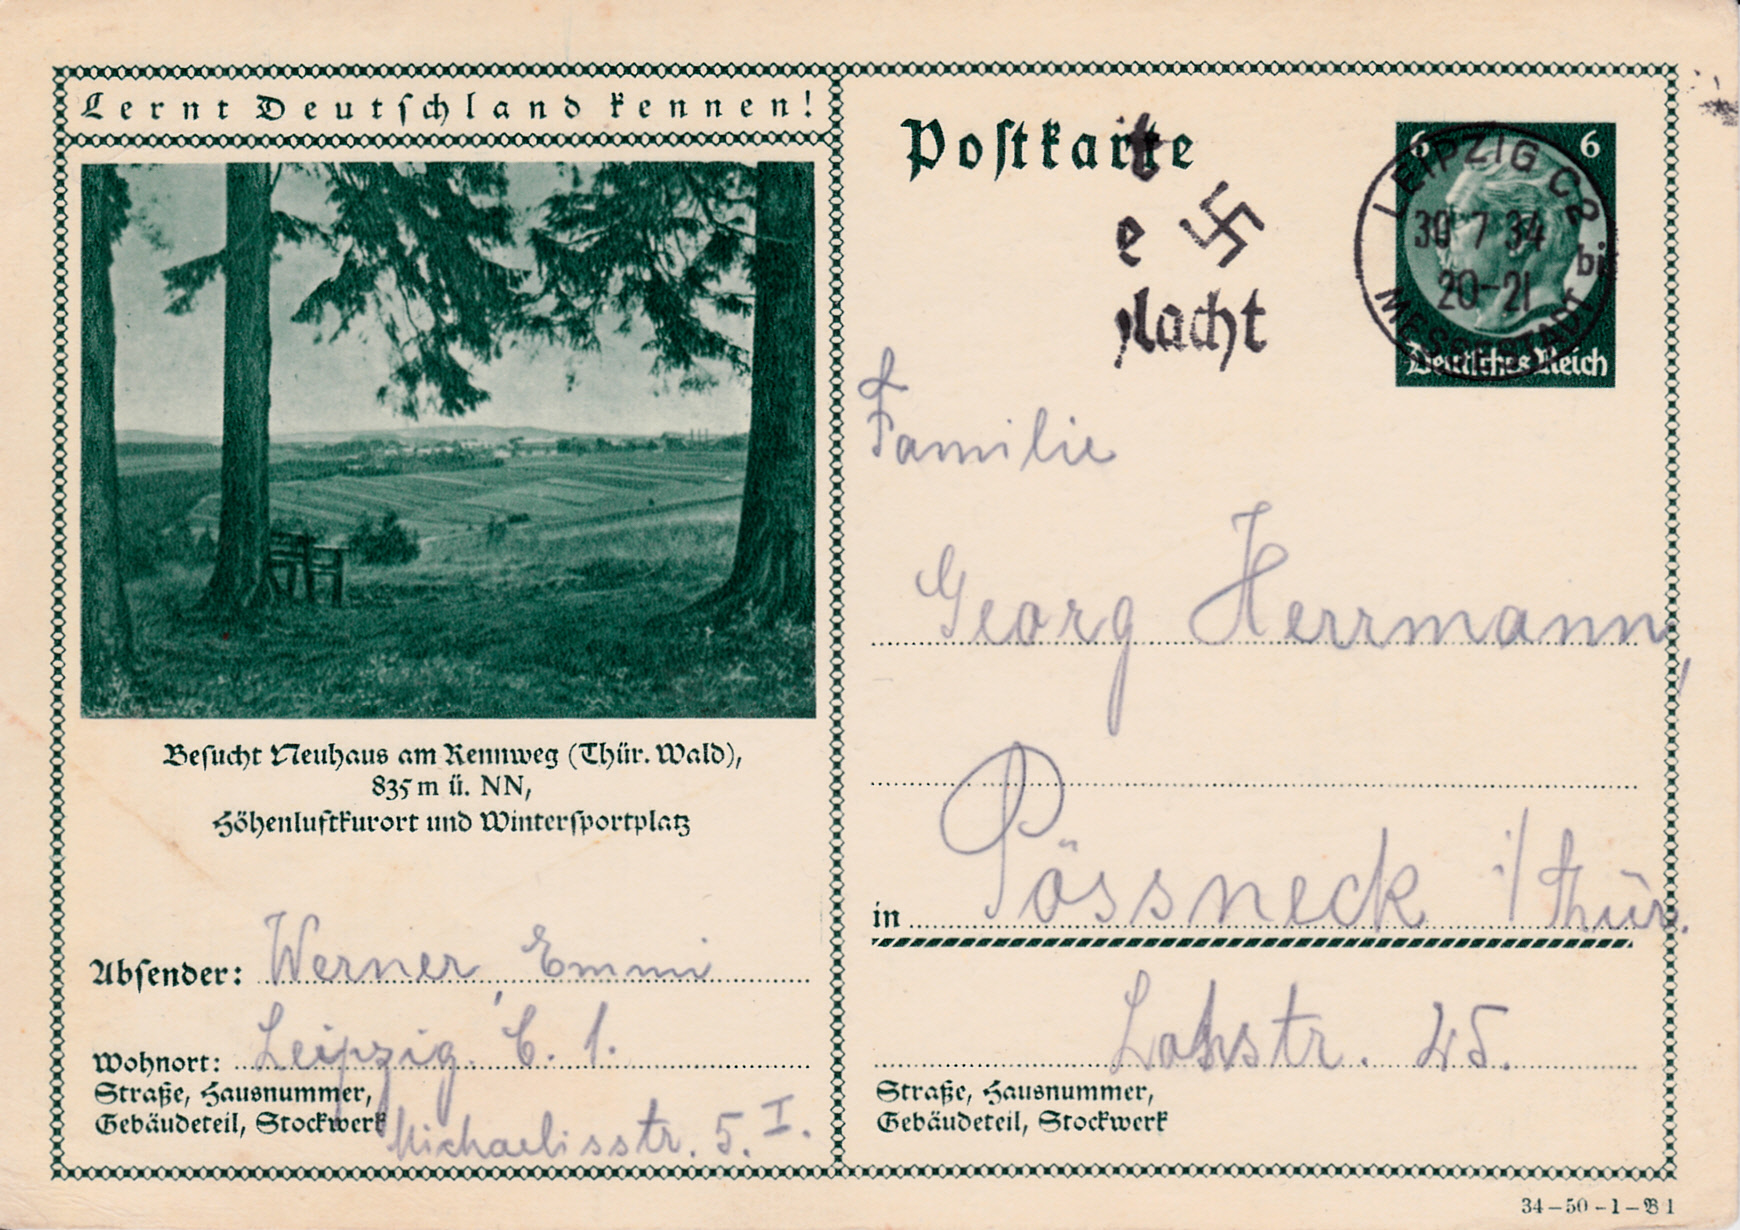 Lernt Deutschland kennen!
Postkarte
6 6
LEIPZIG C2
30 7 34
20-21
bi
MESSESTADT
Deutsches Reich
t
e
lacht
Familie
Georg Herrmann,
in Pössneck i/Thür.
Lohstr. 25.
Straße, Hausnummer,
Gebäudeteil, Stockwerk
Besucht Neuhaus am Rennweg (Thür. Wald),
835 m ü. NN,
Höhenluftkurort und Wintersportplatz
Absender: Werner, Emmi
Wohnort: Leipzig C. 1.
Straße, Hausnummer,
Gebäudeteil, Stockwerk Michaelisstr. 5. I.
34-50-1-B1